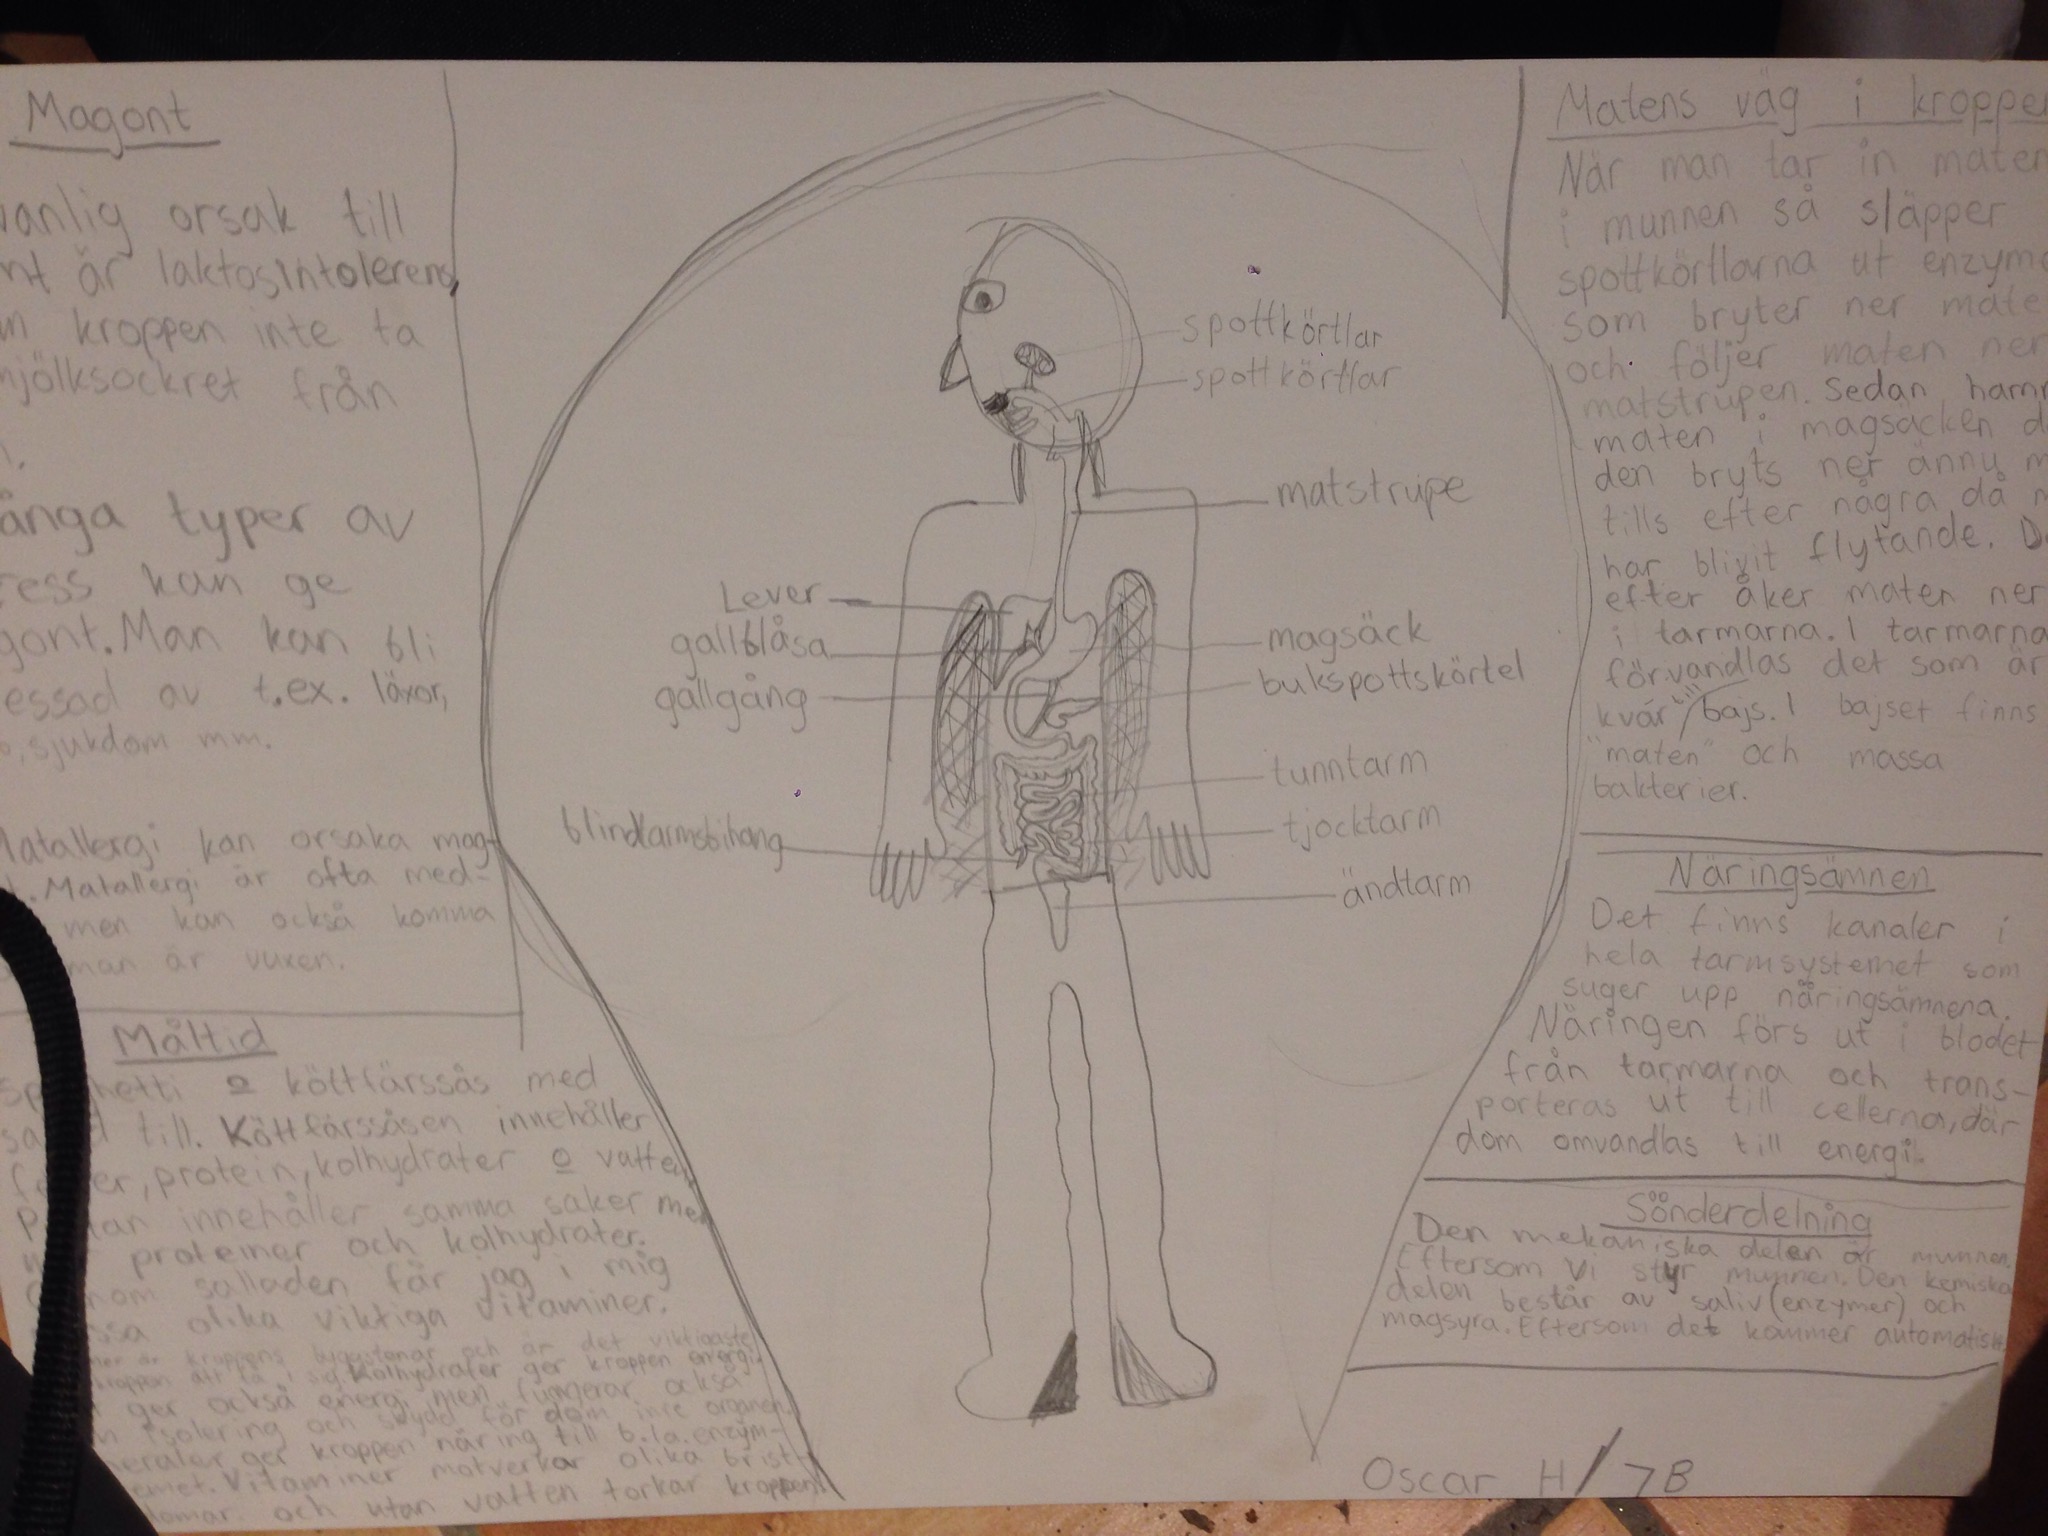 Magont
vanlig orsak till
nt är laktosintolerens,
kroppen inte ta
mjölksockret från
ånga typer av
ress kan ge
gont. Man kan bli
essad av t.ex. läxor,
, sjukdom mm.
Matallergi kan orsaka mag-
. Matallergi är ofta med-
men kan också komma
man är vuxen.
Måltid
hetti o köttfärssås med
till. Köttfärssåsen innehåller
er, protein, kolhydrater o vatten
innehåller samma saker me
proteiner och kolhydrater.
salladen får jag i mig
olika viktiga vitaminer.
kroppens byggstenar och är det viktigaste
kroppen att få i sig. Kolhydrater ger kroppen energi.
ger också energi, men fungerar också
isolering och skydd för dom inre organen.
ger kroppen näring till b.la. enzym-
emet. Vitaminer motverkar olika brist-
domar. och utan vatten torkar kroppen
spottkörtlar
spottkörtlar
matstrupe
Lever
gallblåsa
gallgång
magsäck
bukspottskörtel
tunntarm
tjocktarm
blindtarmsbihang
ändtarm
Matens väg i kroppen
När man tar in maten
i munnen så släpper
spottkörtlarna ut enzyme
som bryter ner mate
och följer maten ner
matstrupen. Sedan hamn
maten i magsäcken d
den bryts ner ännu m
tills efter några då m
har blivit flytande. D
efter åker maten ner
i tarmarna. I tarmarna
förvandlas det som är
kvar till bajs. I bajset finns
"maten" och massa
bakterier.
Näringsämnen
Det finns kanaler i
hela tarmsystemet som
suger upp näringsämnena.
Näringen förs ut i blodet
från tarmarna och trans-
porteras ut till cellerna, där
dom omvandlas till energi.
Sönderdelning
Den mekaniska delen är munnen.
Eftersom vi styr munnen. Den kemiska
delen består av saliv (enzymer) och
magsyra. Eftersom det kommer automatisk
Oscar H/7B